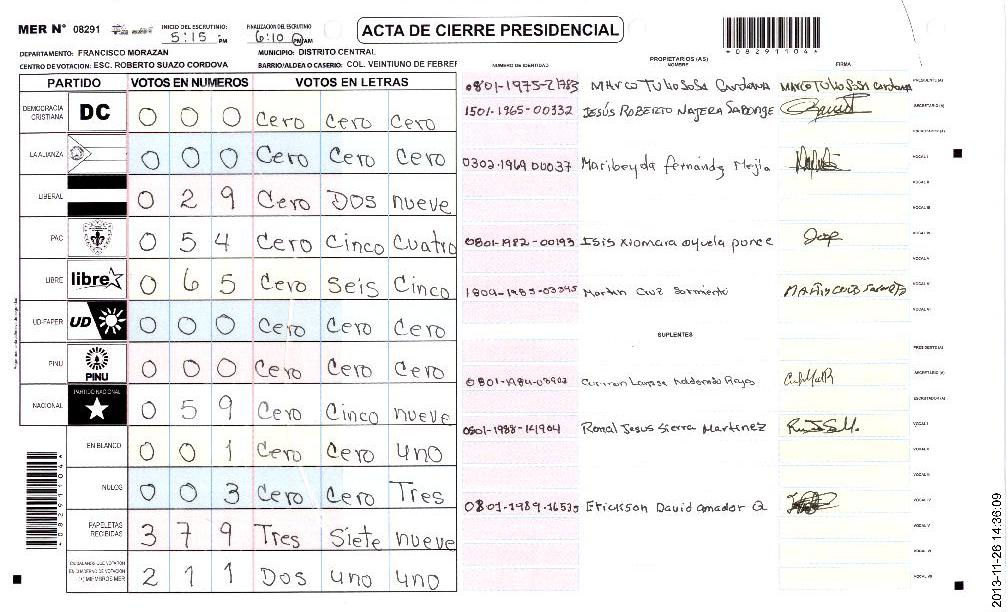 MER N° 08291 INICIO DEL ESCRUTINIO: 5:15 PM FINALIZACION DEL ESCRUTINIO 6:10 PM/AM ACTA DE CIERRE PRESIDENCIAL
*08291104*
DEPARTAMENTO: FRANCISCO MORAZAN MUNICIPIO: DISTRITO CENTRAL
CENTRO DE VOTACION: ESC. ROBERTO SUAZO CORDOVA BARRIO/ALDEA O CASERIO: COL. VEINTIUNO DE FEBRER
PARTIDO VOTOS EN NUMEROS VOTOS EN LETRAS
DEMOCRACIA CRISTIANA DC 0 0 0 Cero Cero Cero
LA ALIANZA 0 0 0 Cero Cero Cero
LIBERAL 0 2 9 Cero Dos nueve
PAC 0 5 4 Cero Cinco Cuatro
LIBRE libre 0 6 5 Cero Seis Cinco
UD-FAPER UD 0 0 0 Cero Cero Cero
PINU PINU 0 0 0 Cero Cero Cero
NACIONAL PARTIDO NACIONAL 0 5 9 Cero Cinco nueve
EN BLANCO 0 0 1 Cero Cero uno
NULOS 0 0 3 Cero Cero Tres
PAPELETAS RECIBIDAS 3 7 9 Tres Siete nueve
CIUDADANOS QUE VOTARON EN CUADERNO DE VOTACION MIEMBROS MER 2 1 1 Dos uno uno
*08291104*
PROPIETARIOS (AS)
NUMERO DE IDENTIDAD NOMBRE FIRMA
0801-1975-21783 Marco Tulio Sosa Cardona Marco Tulio Sosa Cardona PRESIDENTE(A)
1501-1965-00332 Jesús Roberto Najera Sabonge SECRETARIO (A)
0302-1969 00037 Maribeyda fernández Mejia VOCAL I
VOCAL II
VOCAL III
0801-1982-00193 Isis Xiomara oyuela ponce VOCAL IV
VOCAL V
Martin Cruz Sarmiento
SUPLENTES
PRESIDENTE (A)
SECRETARIO (A)
Ronal Jesus Sierra Martinez VOCAL I
VOCAL II
VOCAL III
0801-1989-16535 Erickson David amador Q. VOCAL IV
VOCAL V
VOCAL VI
VOCAL VII
2013-11-26 14:36:09